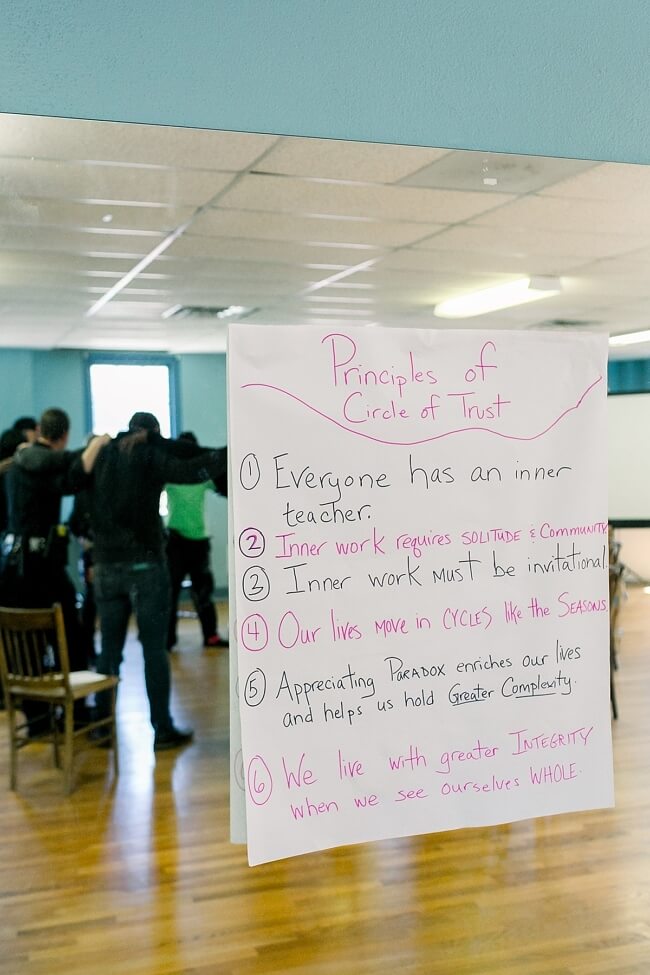 Principles of
Circle of Trust
1 Everyone has an inner
teacher.
2 Inner work requires SOLITUDE & COMMUNITY
3 Inner work MUST be invitational.
4 Our lives MOVE in CYCLES like the SEASONS
5 Appreciating PARADOX enriches our lives
and helps us hold Greater Complexity.
6 We live with greater INTEGRITY
when we see ourselves WHOLE.